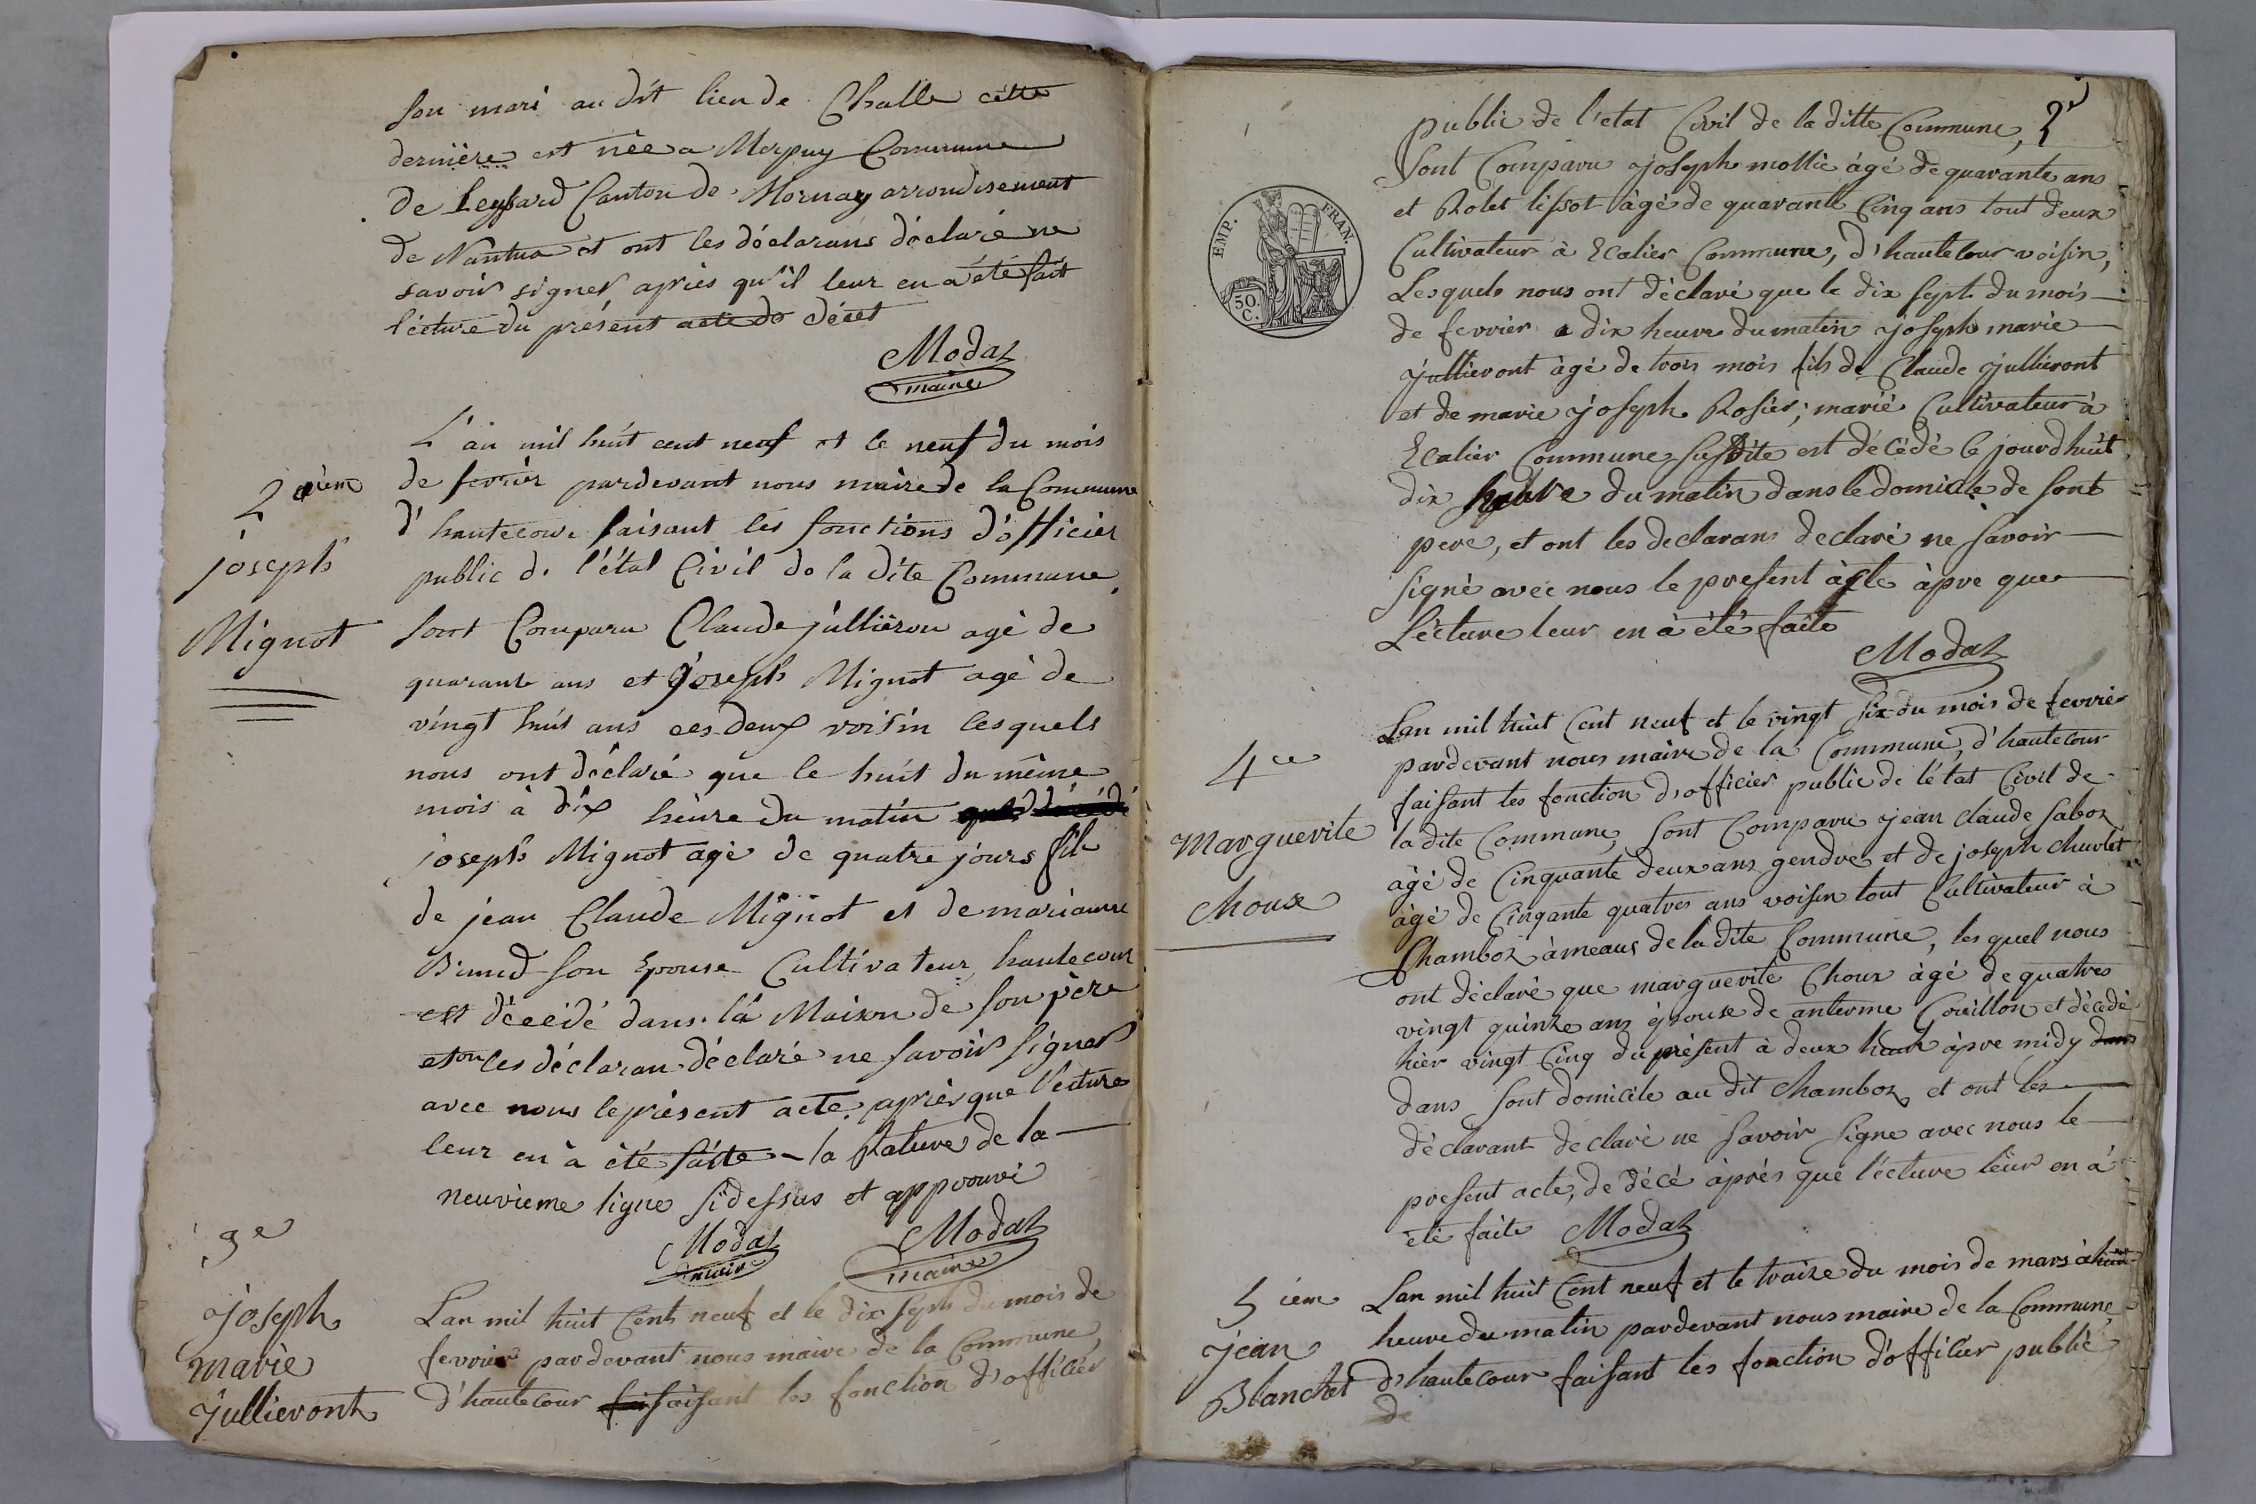 son mari au dit lieu de Challe cette
dernière est née a Merpuy Commune
de Leyssard Canton de Mornay arrondisement
de Nantua et ont les déclarans déclaré ne
savoir signer après qu'il leur en a été fait
lécture du présent acte de décet
Modaz
maire
2ièm
joseph
Mignot
L'an mil huit cent neuf et le neuf du mois
de fevrier pardevant nous maire de la Commune
d'hautecour faisant les fonctions d'officier
public de l'étal Civil de la dite Commune
sont Comparu Claude julliéron agé de
quarante ans et joseph Mignot agé de
vingt huit ans ces deux voisin lesquels
nous ont déclaré que le huit du même
mois à dix heure du matin
joseph Mignot agé de quatre jours fils
de jean Claude Mignot et de marianne
son Epouse Cultivateur hautecour
est décédé dans la Maison de son père
et on les déclaran déclaré ne savoir signer
avec nous le présent acte après que lecture
leur en à été faite - la Rature de la
neuvieme ligne sidessus et approuvé
Modaz
maire
Modaz
maire
3e
joseph
marie
jullieront
Lan mil huit Cent neuf et le dix sept du mois de
fevrier pardevant nous maire de la Commune
d'hautecour faisant les fonction d'officier
2e
public de l'etat Civil de la ditte Commune,
sont Comparu joseph mollie àgé de quarante ans
et Rolet lissot àgé de quarante Cinq ans tout deux
Cultivateur à Ecalier Commune, d'hautecour voisin,
Lesquels nous ont déclaré que le dix sept du mois
de fevrier a dix heure du matin joseph marie
jullieront àgé de trois mois fils de Claude jullieront
et de marie joseph Rosier; marié Cultivateur à
Ecalier Commune susdite est décédé le jourd huit
dix heure du matin dans le domicile de sont
pere, et ont les declarans declaré ne savoir
signé avec nous le present àcte àpre que
Lécture leur en à été faite
Modaz
EMP. FRAN.
50.
C.
4ce
Marguerite
Choux
Lan mil huit Cent neuf et le vingt six du mois de fevrier
pardevant nous maire de la Commune, d'hautecour
faisant les fonction d'officier public de l'état Civil de
la dite Commune, sont Comparu jean Claude Saboz
àgé de Cinquante deux ans gendre et de joseph Charlet
àgé de Cinqante quatres ans voisin tout Cultivateur à
Chamboz àmeaus de la dite Commune, les quel nous
ont déclaré que marguerite Choux àgé de quatres
vingt quinze ans épouse de anteome Covillon et décedé
hier vingt Cinq du présent à deux heur àpre midy dans
dans sont domicile au dit Chamboz, et ont les
déclarant declaré ne savoir signe avec nous le
present acte, de décé àprés que l'écture leur en á
été faite Modaz
5ièm
jean
Blanchet
Lan mil huit Cent neuf et le traize du mois de mars à huit
heure du matin pardevant nous maire de la Commune,
d'hautecour faisant les fonction d'officier public
de